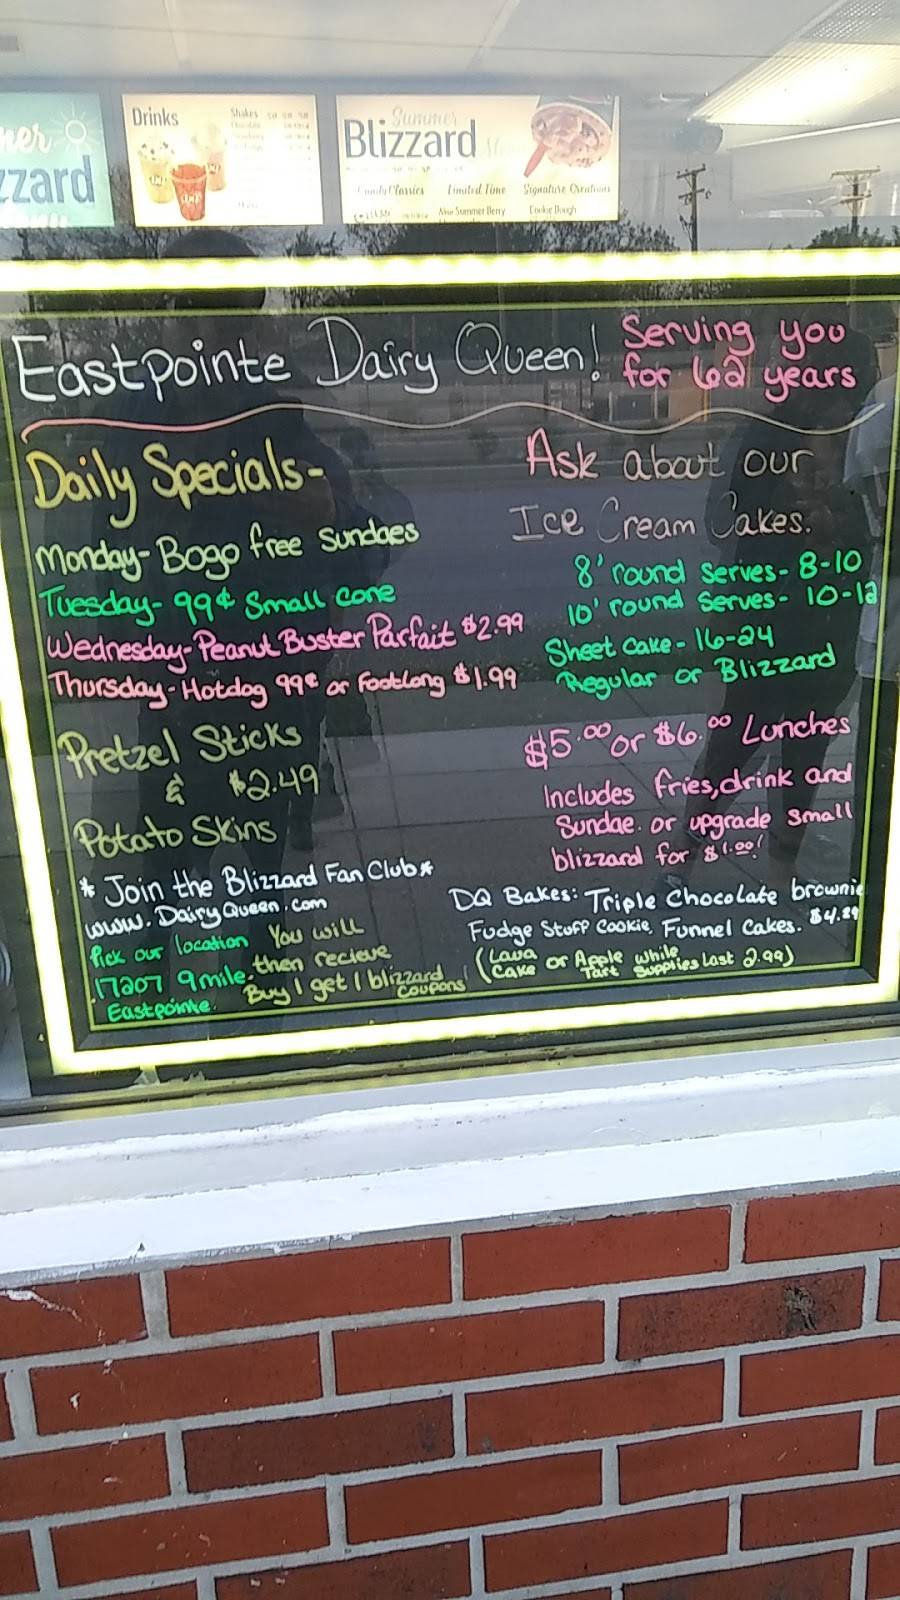 ner
zzard
Drinks
Shakes
Summer
Blizzard
Candy Classics
Limited Time
Signature Creations
New Summer Berry
Cookie Dough
Eastpointe Dairy Queen!
Serving you
for 62 years
Daily Specials-
Monday- Bogo free Sundaes
Tuesday- 99¢ Small Cone
Wednesday- Peanut Buster Parfait $2.99
Thursday- Hotdog 99¢ or Footlong $1.99
Pretzel Sticks
& $2.49
Potato Skins
* Join the Blizzard Fan Club *
www.DairyQueen.com
Pick our location
17207 9 mile.
Eastpointe.
You will
then recieve
Buy 1 get 1 blizzard
coupons!
Ask about our
Ice Cream Cakes.
8' round serves- 8-10
10' round serves- 10-12
Sheet cake- 16-24
Regular or Blizzard
$5.00 or $6.00 Lunches
Includes fries, drink and
Sundae. or upgrade small
blizzard for $1.00!
DQ Bakes: Triple Chocolate brownie
Fudge Stuff Cookie, Funnel Cakes. $4.29
(Lava Cake or Apple Tart while supplies last 2.99)